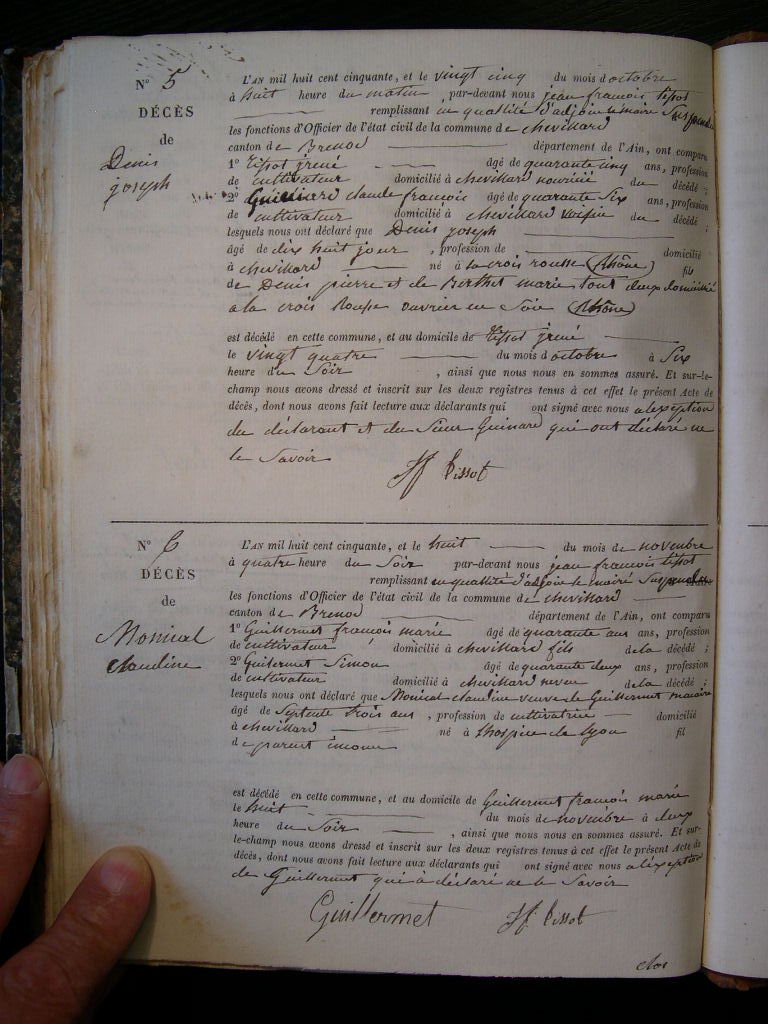 N° 5
DÉCÈS
de
Denis
joseph
L'AN mil huit cent cinquante, et le vingt cinq du mois d octobre
à huit heure du matin par-devant nous jean françois tissot
remplissant en quallité d'adjoin le maire Suspendu
les fonctions d'Officier de l'état civil de la commune de chevillard
canton de Brenod département de l'Ain, ont comparu
1° tissot jrené âgé de quarante cinq ans, profession
de cultivateur domicilié à chevillard nouricié du décédé ;
2° Guilliard claude françois âgé de quarante Six ans, profession
de cultivateur domicilié à chevillard voisin du décédé ;
lesquels nous ont déclaré que Denis joseph
âgé de dix huit jour , profession de domicilié
à chevillard né à la crois rousse (Rhône) fils
de Denis pierre et de Berthet marie tout deux domicilié
a la crois Rousse ouvrier en Soie (Rhône)
est décédé en cette commune, et au domicile de tissot jrené
le vingt quatre du mois d octobre à Six
heure du Soir , ainsi que nous nous en sommes assuré. Et sur-le-
champ nous avons dressé et inscrit sur les deux registres tenus à cet effet le présent Acte de
décès, dont nous avons fait lecture aux déclarants qui ont signé avec nous a lexception
du déclarant et du Sieur Guinard qui ont déclaré ne
le Savoir
Jf tissot
N° 6
DÉCÈS
de
Monical
claudine
L'AN mil huit cent cinquante, et le huit du mois de novembre
à quatre heure du Soir par-devant nous jean francois tissot
remplissant en quallité d'adjoin le maire Suspendu
les fonctions d'Officier de l'état civil de la commune de chevillard
canton de Brenod département de l'Ain, ont comparu
1° Guillermet françois marie âgé de quarante ans ans, profession
de cultivateur domicilié à chevillard fils de la décédé ;
2° Guillermet Simon âgé de quarante deux ans, profession
de cultivateur domicilié à chevillard neveu de la décédé ;
lesquels nous ont déclaré que Monical claudine veuve de Guillermet
âgé de Septente trois ans , profession de cultivatrice domicilié
à chevillard né à lhospice de lyon fil
de parent inconu
est décédé en cette commune, et au domicile de Guillermet francois marie
le huit du mois de novembre à deux
heure du Soir , ainsi que nous nous en sommes assuré. Et sur-
le-champ nous avons dressé et inscrit sur les deux registres tenus à cet effet le présent Acte de
décès, dont nous avons fait lecture aux déclarants qui ont signé avec nous a léxception
de Guillermet qui à déclaré ne le Savoir
Guillermet Jf tissot
clos